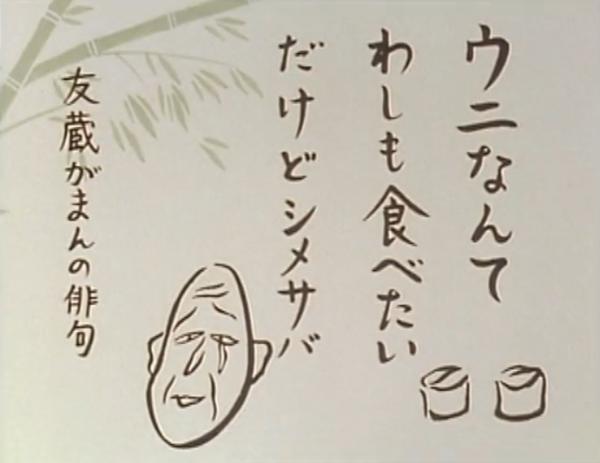 ウニなんて
わしも食べたい
だけどシメサバ
友蔵がまんの俳句